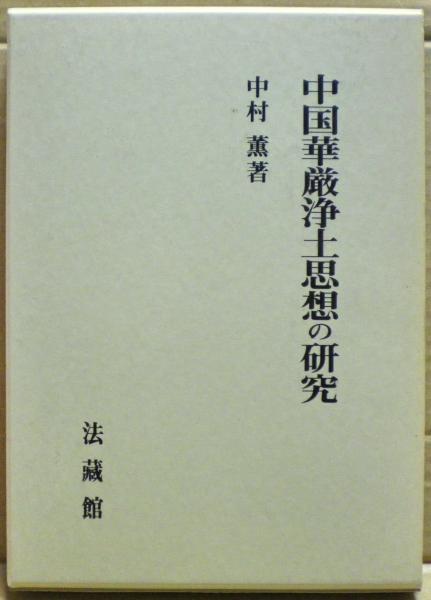 中国華厳浄土思想の研究
中村 薫著
法藏館